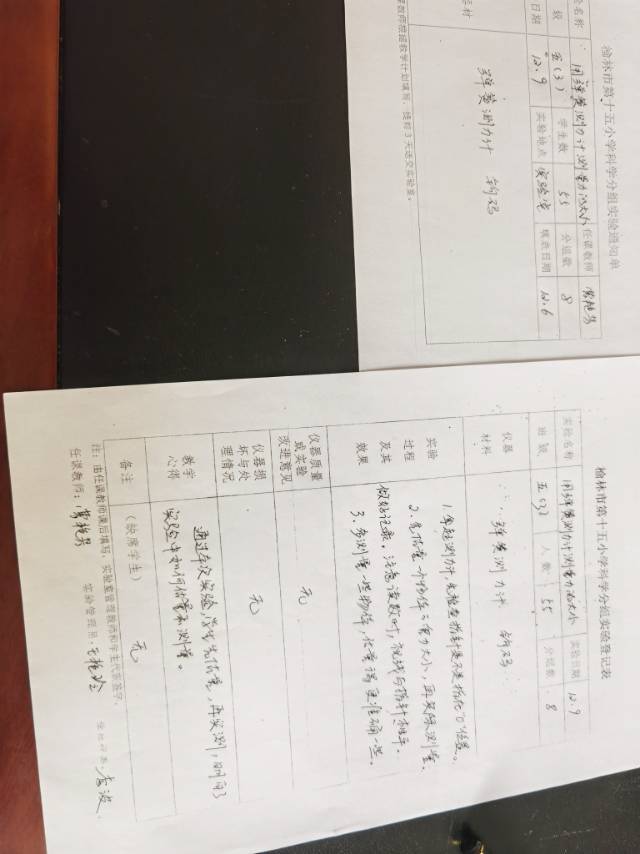 榆林市第十五小学科学分组实验通知单
验名称 用弹簧测力计测量力的大小 任课教师
级 五(3) 学生数 55 分组数 8
日期 12.9 实验地点 实验室 填表日期 12.6
器材 弹簧测力计 钩码
课教师根据教学计划填写，提前3天送交实验室。
榆林市第十五小学科学分组实验登记表
实验名称 用弹簧测力计测量力的大小 实验日期 12.9
班级 五(3) 人数 55 分组数 8
仪器
材料
弹簧测力计 钩码
实验
过程
及其
效果
1.拿起测力计,先检查指针是不是指在"0"位置。
2.先估重一个物体有多大,再实际测量。
做好记录。注意读数时,视线与指针相平。
3.多测量一些物体,估重误更准确些。
仪器质量
或实验
改进意见
无
仪器损
坏与处
理情况
无
教学
心得
通过本次实验,学生先估重,再实测,明白了
实验中如何估量和测量。
备注
(缺席学生)
无
注：由任课教师课后填写，实验室管理教师和学生代表签字。
任课教师: 实验管理员: 学生代表: